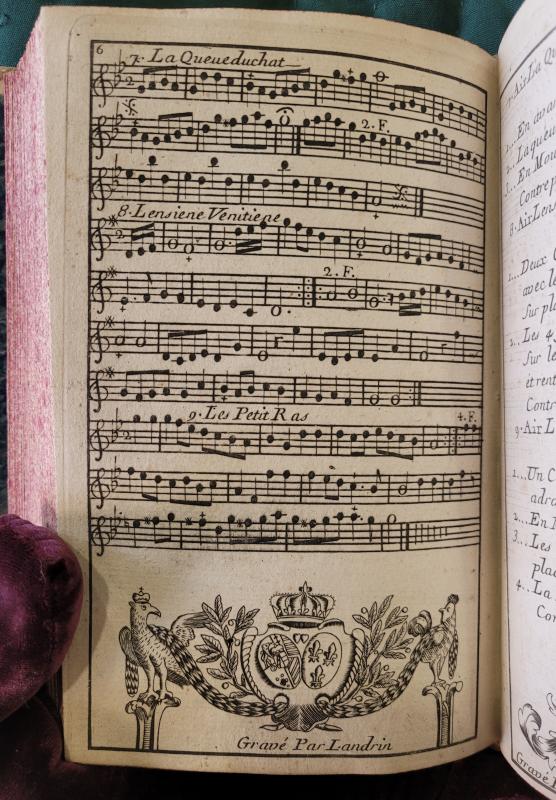 6
7. La Queue du chat
2. F.
8. Lensiene Venitiene
2. F.
9. Les Petit Ras
4. F.
Gravé Par Landrin
7. Air La Q
1... En ava
2... La queu
3... En Mou
Contre p
8. Air Lens
1... Deux C
avec le
Sur pl
2... Les 4
Sur le
et rent
Contr
9. Air L
1... Un C
adro
2... En
3... Les
pla
4... La
Con
Gravé P